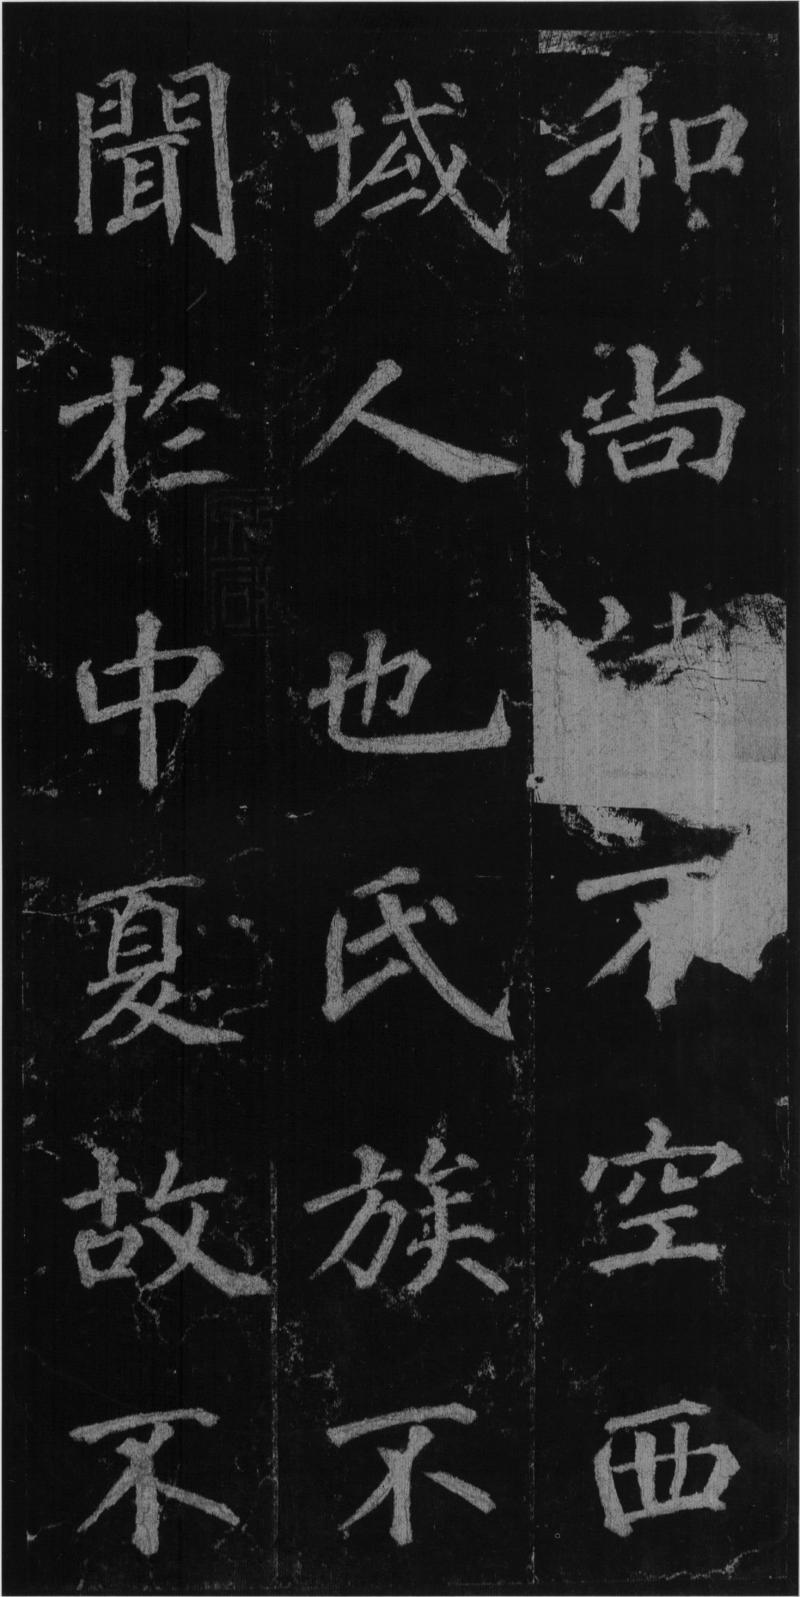 和尚諱不空西
域人也氏族不
聞於中夏故不